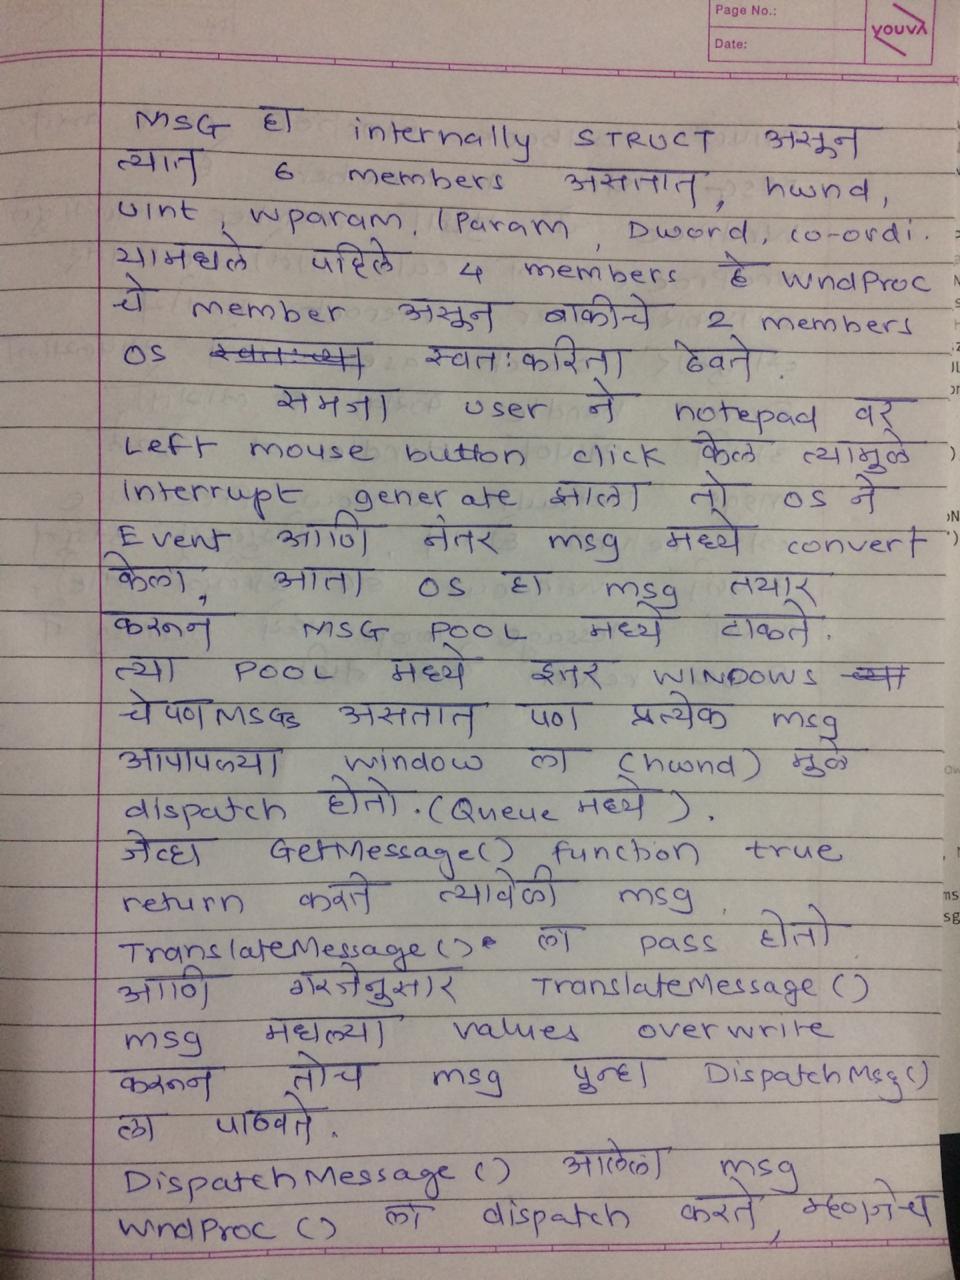 Page No.:
Date:
youva
MSG हा internally STRUCT असून
त्यात 6 members असतात, hwnd,
uint, wparam, lParam, Dword, co-ordi.
यामधले पहिले 4 members हे WndProc
चे member असून बाकीचे 2 members
OS स्वतःच्या स्वतःकरिता ठेवते.
समजा user ने notepad वर
Left mouse button click केल त्यामुळे
Interrupt generate झाला तो OS ने
Event आणि नंतर msg मध्ये convert
केला, आता OS हा msg तयार
करून MSG POOL मध्ये टाकते.
त्या POOL मध्ये इतर WINDOWS च्या
चे पण MSGs असतात पण प्रत्येक msg
आपापल्या window ला (hwnd) मुळे
dispatch होतो. (Queue मध्ये).
जेव्हा GetMessage() function true
return करते त्यावेळी msg
TranslateMessage() ला pass होतो
आणि गरजेनुसार TranslateMessage()
msg मधल्या values overwrite
करून तोच msg पुन्हा DispatchMsg()
ला पाठवते.
DispatchMessage() आलेला msg
WndProc() ला dispatch करते, म्हणजेच